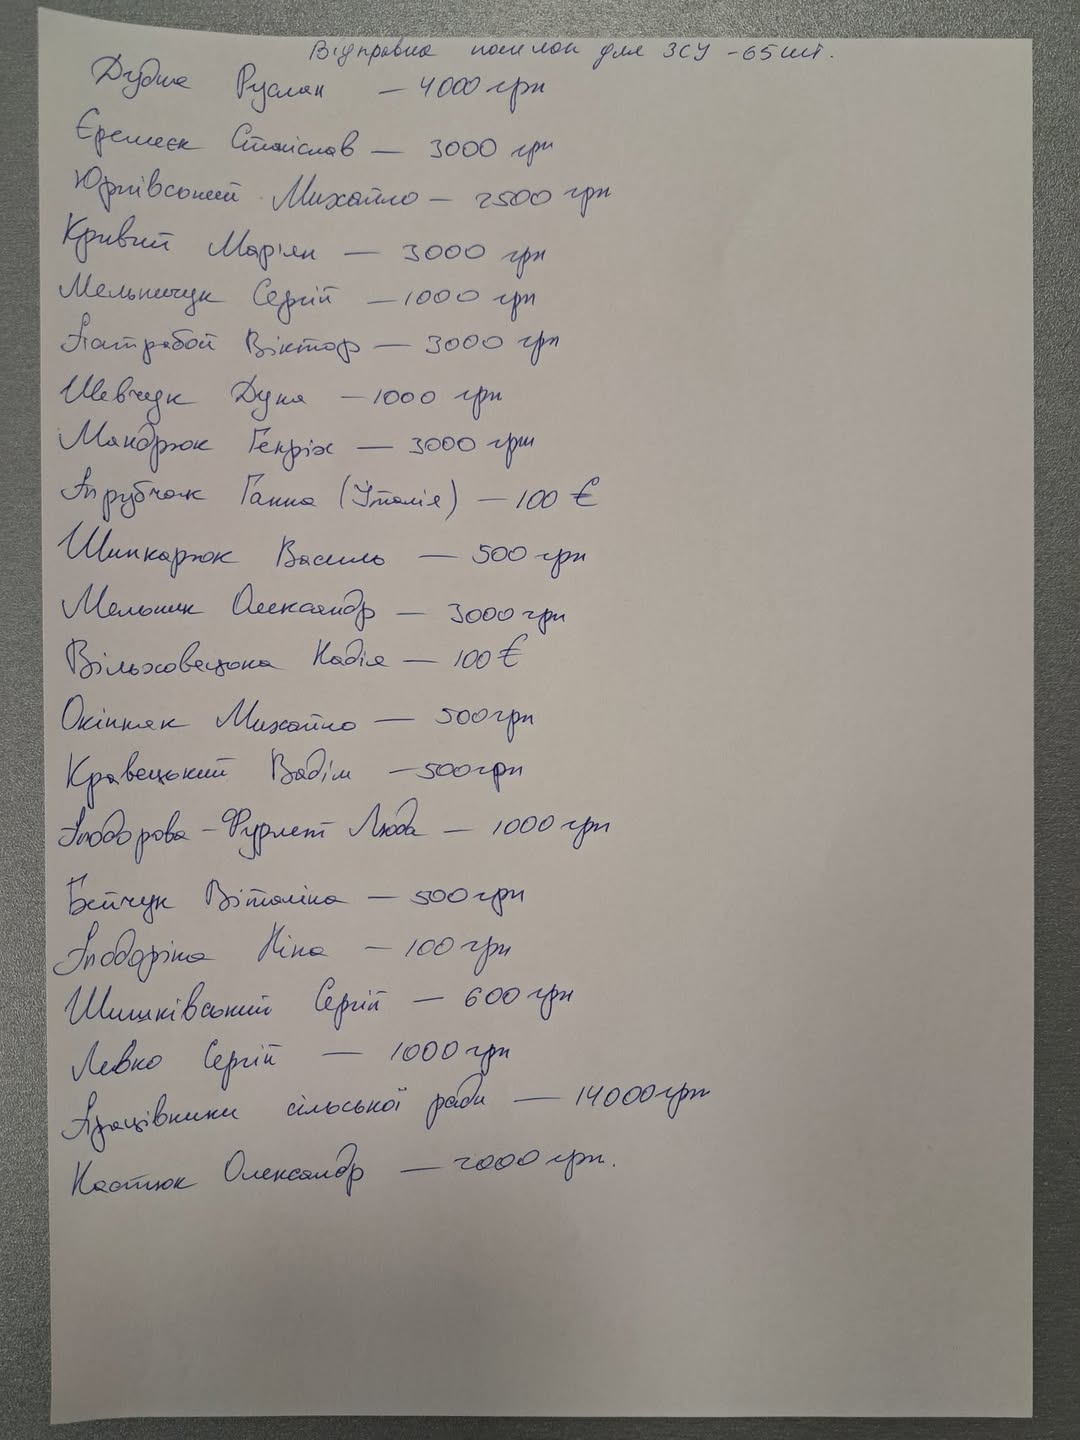 Відправка посилок для ЗСУ - 65 шт.
Руслан — 4000 грн
Станіслав — 3000 грн
Юрківський Михайло — 2500 грн
Кривий Мар'ян — 3000 грн
Мельничук Сергій — 1000 грн
Віктор — 3000 грн
Шевчук — 1000 грн
Мандрюк Генріх — 3000 грн
Ганна (Італія) — 100 €
Шинкарюк Василь — 500 грн
Мельник Олександр — 3000 грн
Вільховецька Надія — 100 €
Михайло — 500 грн
Кравецький Вадім — 500 грн
Люда — 1000 грн
Віталіна — 500 грн
Ніна — 100 грн
Шишківський Сергій — 600 грн
Левко Сергій — 1000 грн
Працівники сільської ради — 14000 грн
Костюк Олександр — 2000 грн.